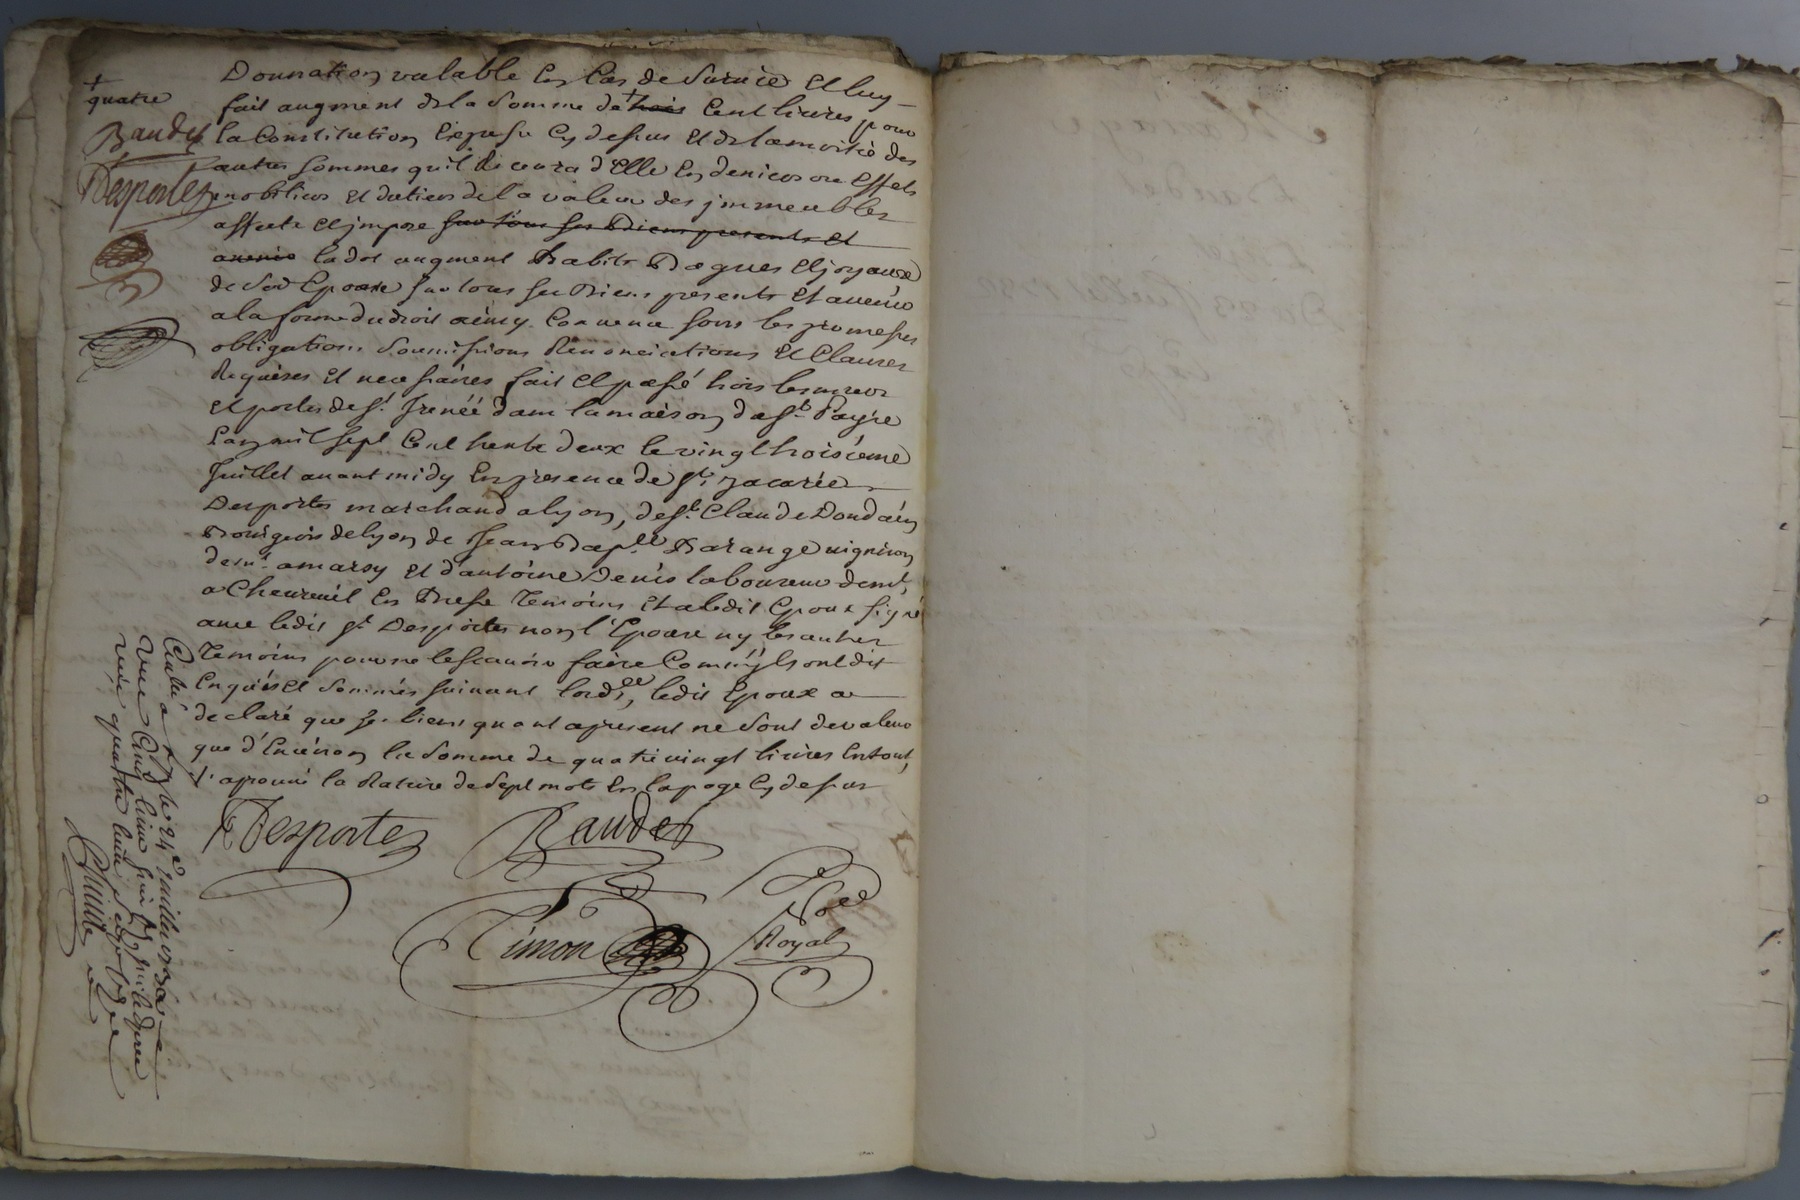 Donnation valable En Cas de Survie Et luy
fait augment de la Somme de + trois Cent livres pour
la Constitution Expresse Cy dessus Et de la moitié des
autres sommes qu'il recevra d'Elle En deniers ou Effets
mobiliers Et du tiers de la valeur des jmmeubles
affecte Et jmpose sur tous ses Biens presents et
avenir la dot augment habits Bagues Et joyaux
de Sad Epouse sur tous ses Biens presents Et avenir
a la forme du droit ainsy Convenu sous les promesses
obligations Soumissions Renonciations Et Clauses
Requises Et necessaires fait Et passé hors les murs
Et portes de St Irenéé dans la maison du Sr Payre
L'an mil sept Cent trente deux le vingt troisieme
Juillet avant midy En presence de Sr Zacarie
Desportes marchand a lyon, de Sr Claude Dondain
Bourgeois de lyon de Jean Baple Barange vigneron
demt a marsy Et d'antoine Denis laboureur demt
a Cheureuil En Bresse Temoins Et a ledit Epoux signé
avec ledit Sr Desportes non l'Epouse ny les autres
Temoins pour ne le scavoir faire Comm'ils ont dit
Enquis Et Sommés suivant l'ordce, ledit Epoux a
declaré que ses biens quant apresent ne sont de valeur
que d'Environ la Somme de quatrevingt livres En tout,
j'aprouvé la Rature de sept mots En la page Cy dessus
Desportes Baudet
Simon
Noe
Royal
+
quatre
Baudet
Desportes
le 24e juillet